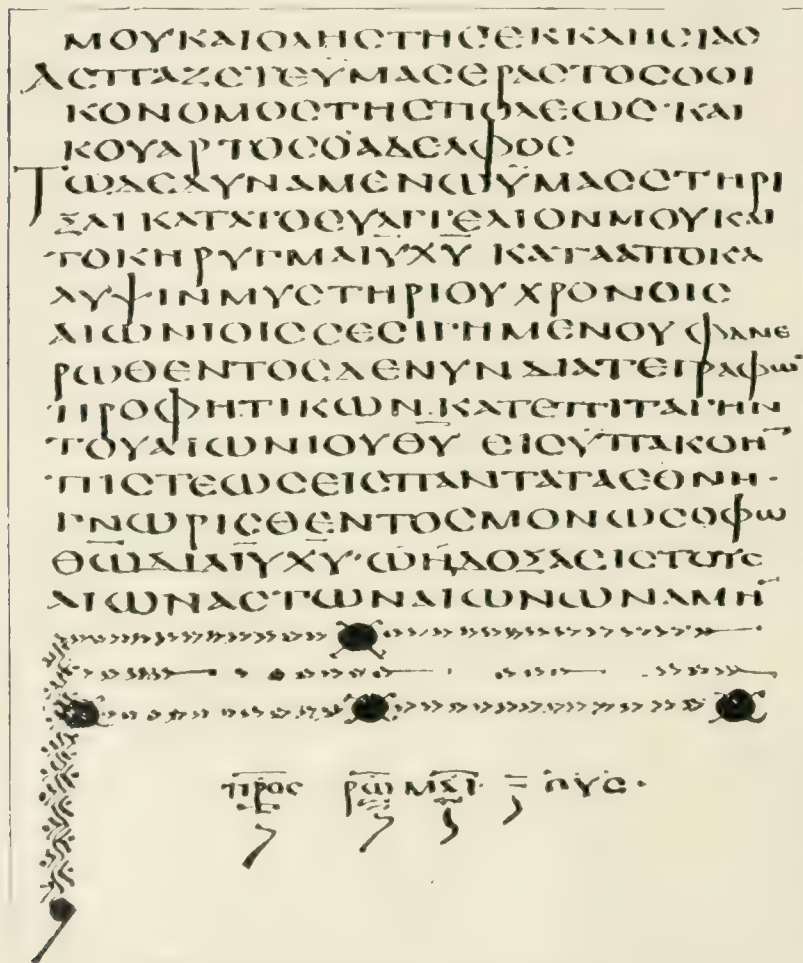 ΜΟΥΚΑΙΟΛΗϹΤΗϹΕΚΚΛΗϹΙΑϹ
ΑϹΠΑΖΕΤΕΥΜΑϹΕΡΑϹΤΟϹΟΟΙ
ΚΟΝΟΜΟϹΤΗϹΠΟΛΕΩϹ·ΚΑΙ
ΚΟΥΑΡΤΟϹΟΑΔΕΛΦΟϹ
ΤΩΔΕΔΥΝΑΜΕΝΩΫΜΑϹϹΤΗΡΙ
ΞΑΙΚΑΤΑΤΟΕΥΑΓΓΕΛΙΟΝΜΟΥΚΑΙ
ΤΟΚΗΡΥΓΜΑΙΥ̅ΧΥ̅ ΚΑΤΑΑΠΟΚΑ
ΛΥΨΙΝΜΥϹΤΗΡΙΟΥΧΡΟΝΟΙϹ
ΑΙΩΝΙΟΙϹϹΕϹΙΓΗΜΕΝΟΥΦΑΝΕ
ΡΩΘΕΝΤΟϹΔΕΝΥΝΔΙΑΤΕΓΡΑΦΩ̅
ΠΡΟΦΗΤΙΚΩΝ·ΚΑΤΕΠΙΤΑΓΗΝ
ΤΟΥΑΙΩΝΙΟΥΘΥ̅ ΕΙϹΫΠΑΚΟΗ̅
ΠΙϹΤΕΩϹΕΙϹΠΑΝΤΑΤΑΕΘΝΗ·
ΓΝΩΡΙϹΘΕΝΤΟϹΜΟΝΩϹΟΦΩ
ΘΩ̅ΔΙΑΙΥ̅ΧΥ̅·ΩΗΔΟΞΑΕΙϹΤΟΥϹ
ΑΙΩΝΑϹΤΩΝΑΙΩΝΩΝΑΜΗ̅
ΠΡΟϹ ΡΩΜΑΙ·